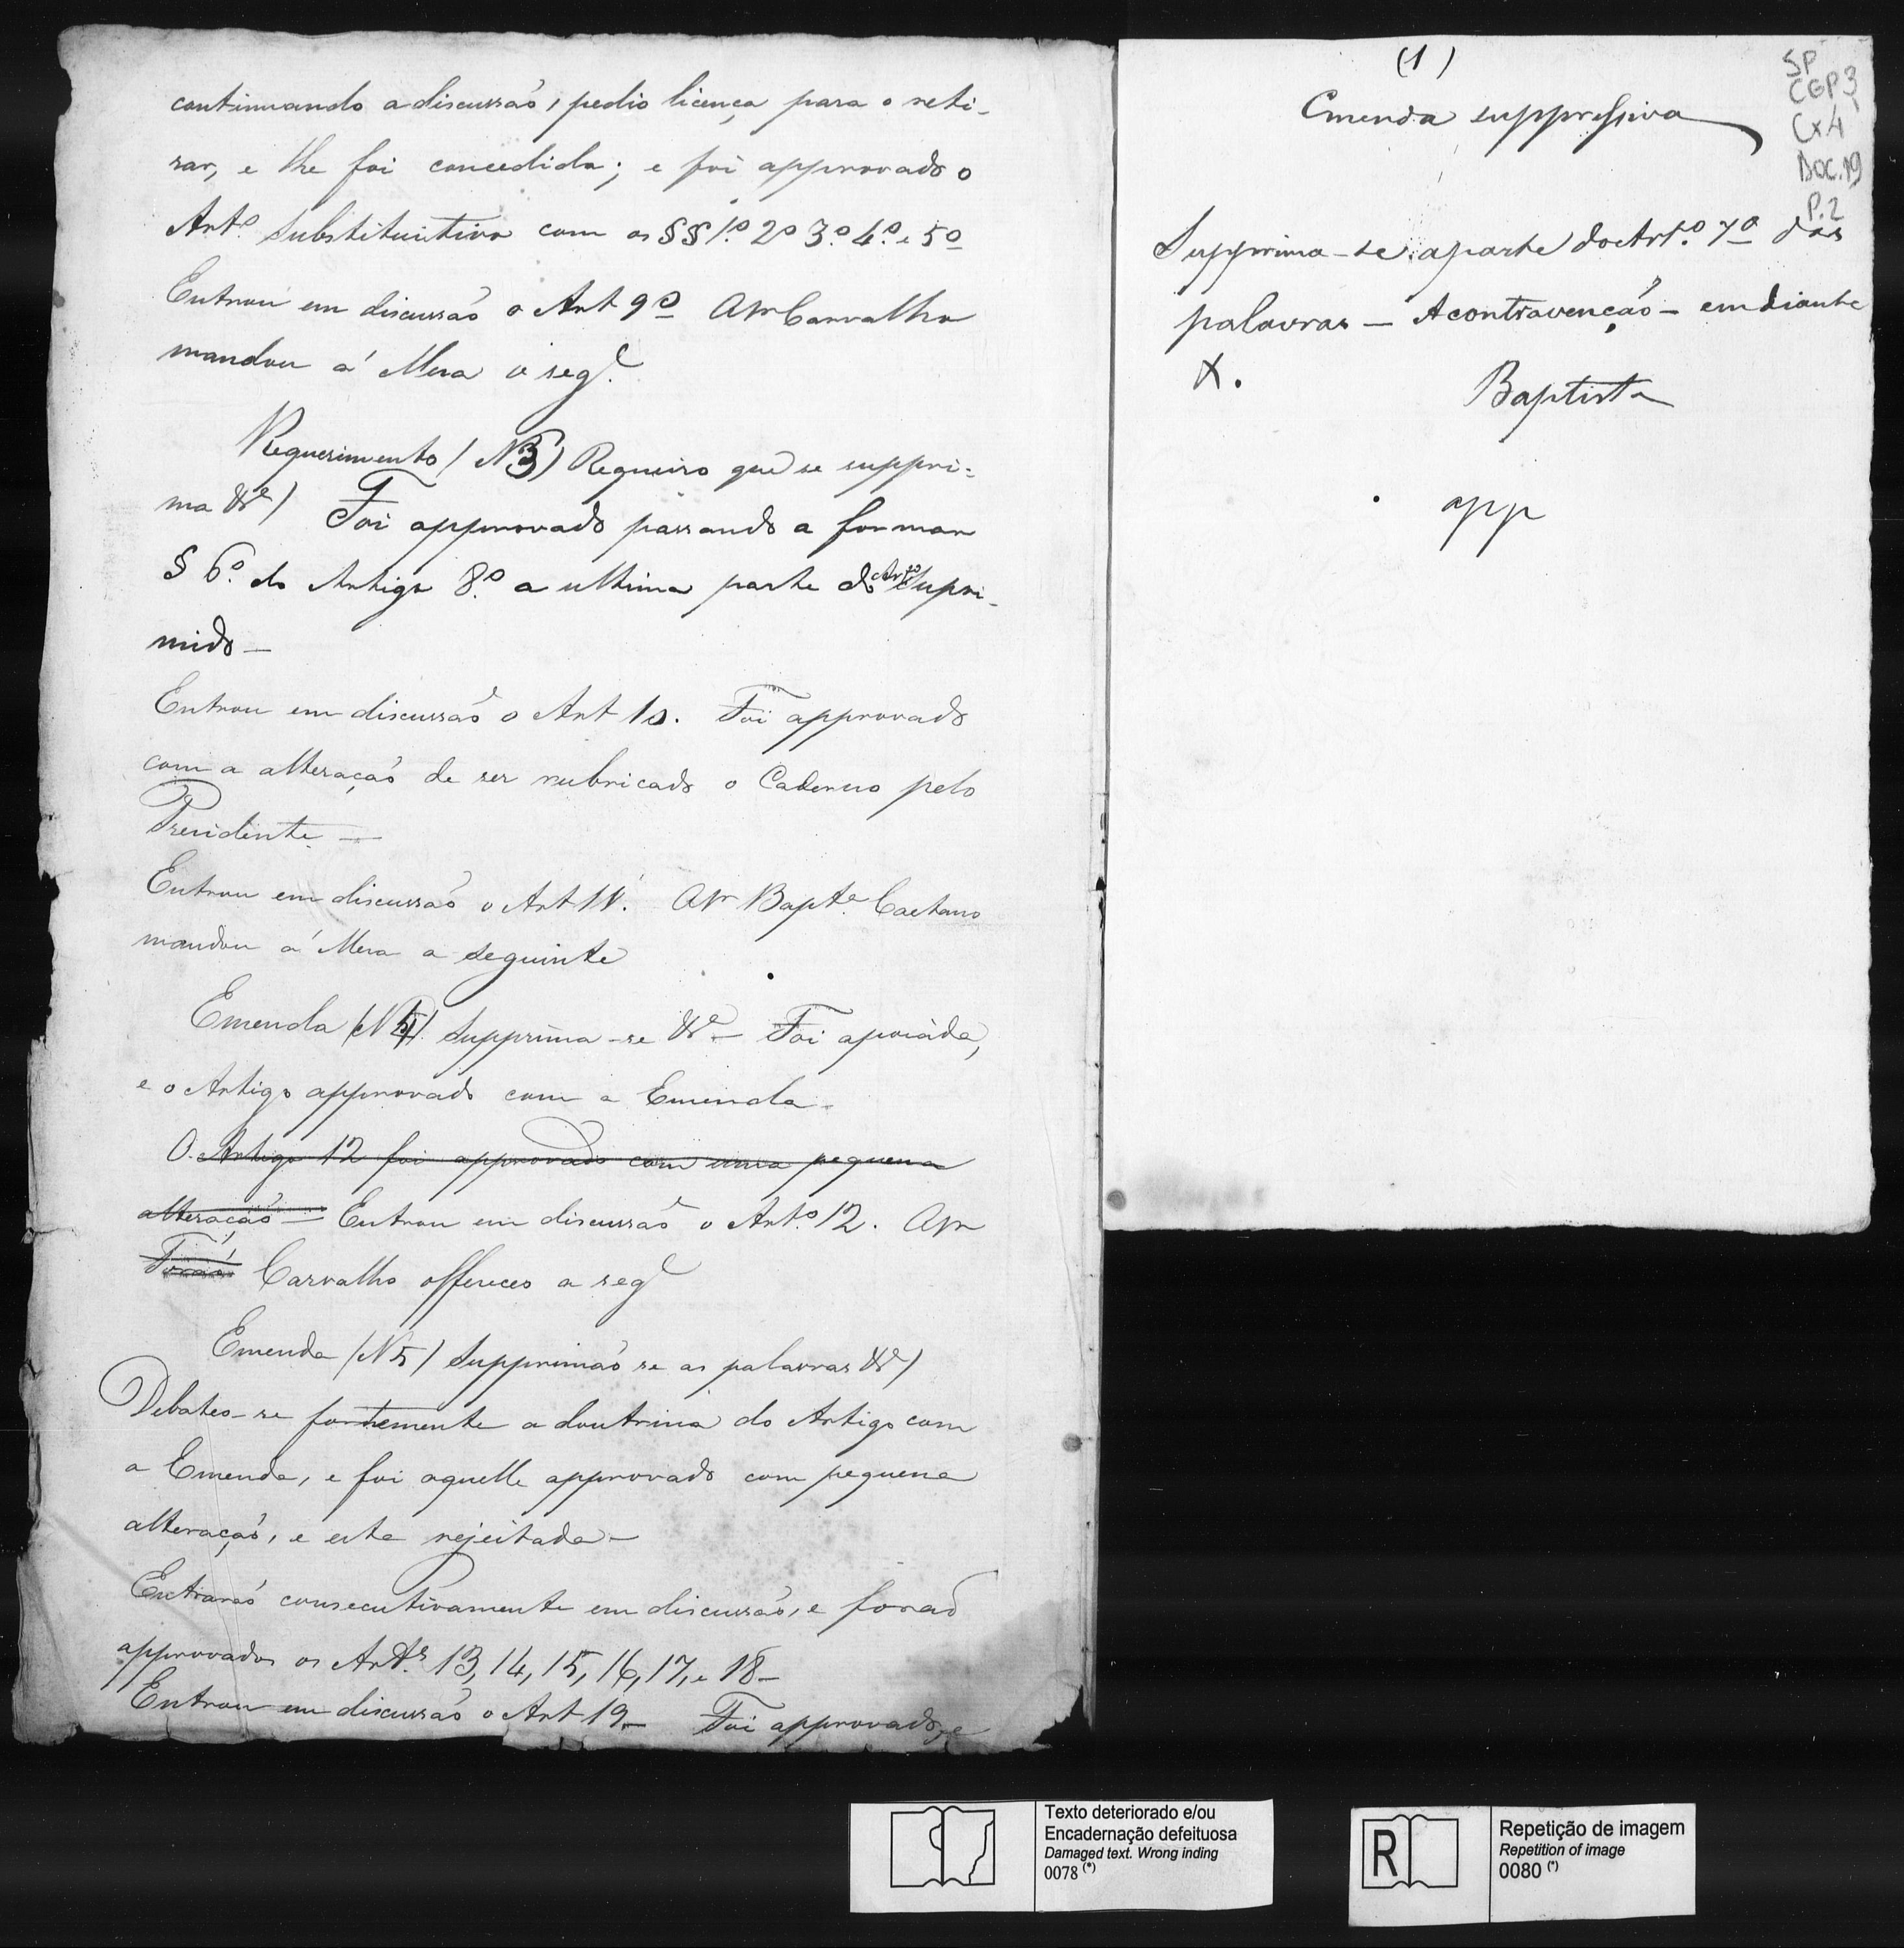 continuando a discussaõ, pedio licença para o reti-
rar, e lhe foi concedida; e foi approvado o
Artº. substituitivo com os §§ 1º. 2º 3º. 4º. e 5º
Entrou em discussaõ o Art 9º O Sr Carvalho
mandou á Mesa o segᵉ.
Requerimento (N 3) Requeiro que se suppri-
ma &ª) Foi approvado passando a formar
§ 6º. do Artigo 8º. a ultima parte do Artº Supri-
mido —
Entrou em discussaõ o Art 10. Foi approvado
com a alteraçaõ de ser rubricado o Caderno pelo
Presidente —
Entrou em discussaõ o Art 11. O Sr Baptª. Caetano
mandou á Mesa a seguinte
Emenda (N 4) Supprima-se &ª — Foi apoiada,
e o Artigo approvado com a Emenda —
O Artigo 12 foi approvado com uma pequena
alteraçaõ — Entrou em discussaõ o Artº. 12. O Sr
Carvalho offereceo a segᵉ
Emenda (N 5) Supprimaõ se as palavras &ª)
Debateo-se fortemente a doutrina do Artigo com
a Emenda, e foi aquelle approvado com pequena
alteraçaõ, e esta rejeitada —
Entraraõ consecutivamente em discussaõ, e foraõ
approvados os Artˢ. 13, 14, 15, 16, 17, e 18 —
Entrou em discussaõ o Art 19 — Foi approvado, e
(1)
Emenda suppressiva
SP
CGP3
Cx4
Doc.19
P.2
Supprima-se a parte do Artº. 7º das
palavras — A contravençaõ — em diante
X.
Baptista
app
Texto deteriorado e/ou
Encadernação defeituosa
Damaged text. Wrong inding
0078 (*)
R
Repetição de imagem
Repetition of image
0080 (*)